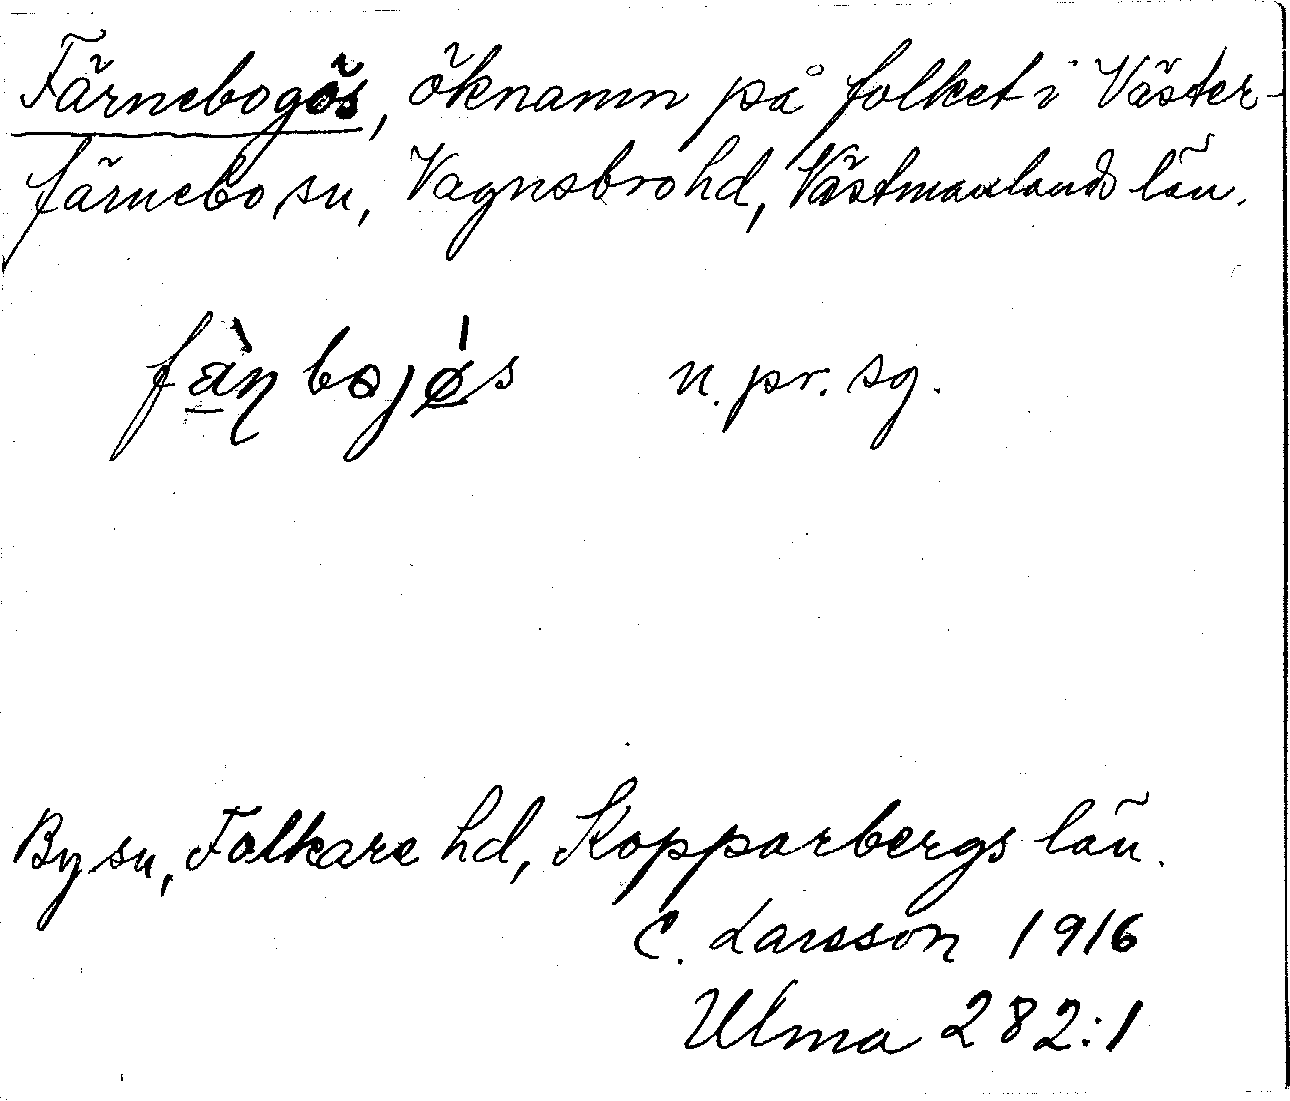 Färnebogös, öknamn på folket i Väster-
färnebo sn, Vagnsbro hd, Västmanlands län.
fä̀ṇbojǿs n. pr. sg.
By sn, Folkare hd, Kopparbergs län.
C. Larsson 1916
Ulma 282:1